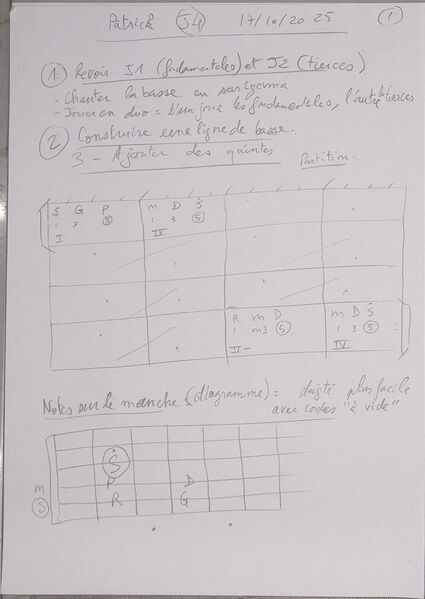 Patrick J4 17/10/2025 1
1 Revoir J1 (fondamentales) et J2 (tierces)
- Chanter la basse en sargam
- Jouer en duo = L'un joue les fondamentales, l'autre les tierces
2 Construire une ligne de basse.
3 - Ajouter des quintes
Partition:
S G P m D Ṡ
1 3 5 1 3 5
I IV
R m D m D Ṡ
1 m3 5 1 3 5
II- IV
Notes sur le manche (diagramme): doigté plus facile
avec cordes "à vide"
Ṡ
m P D
S R G